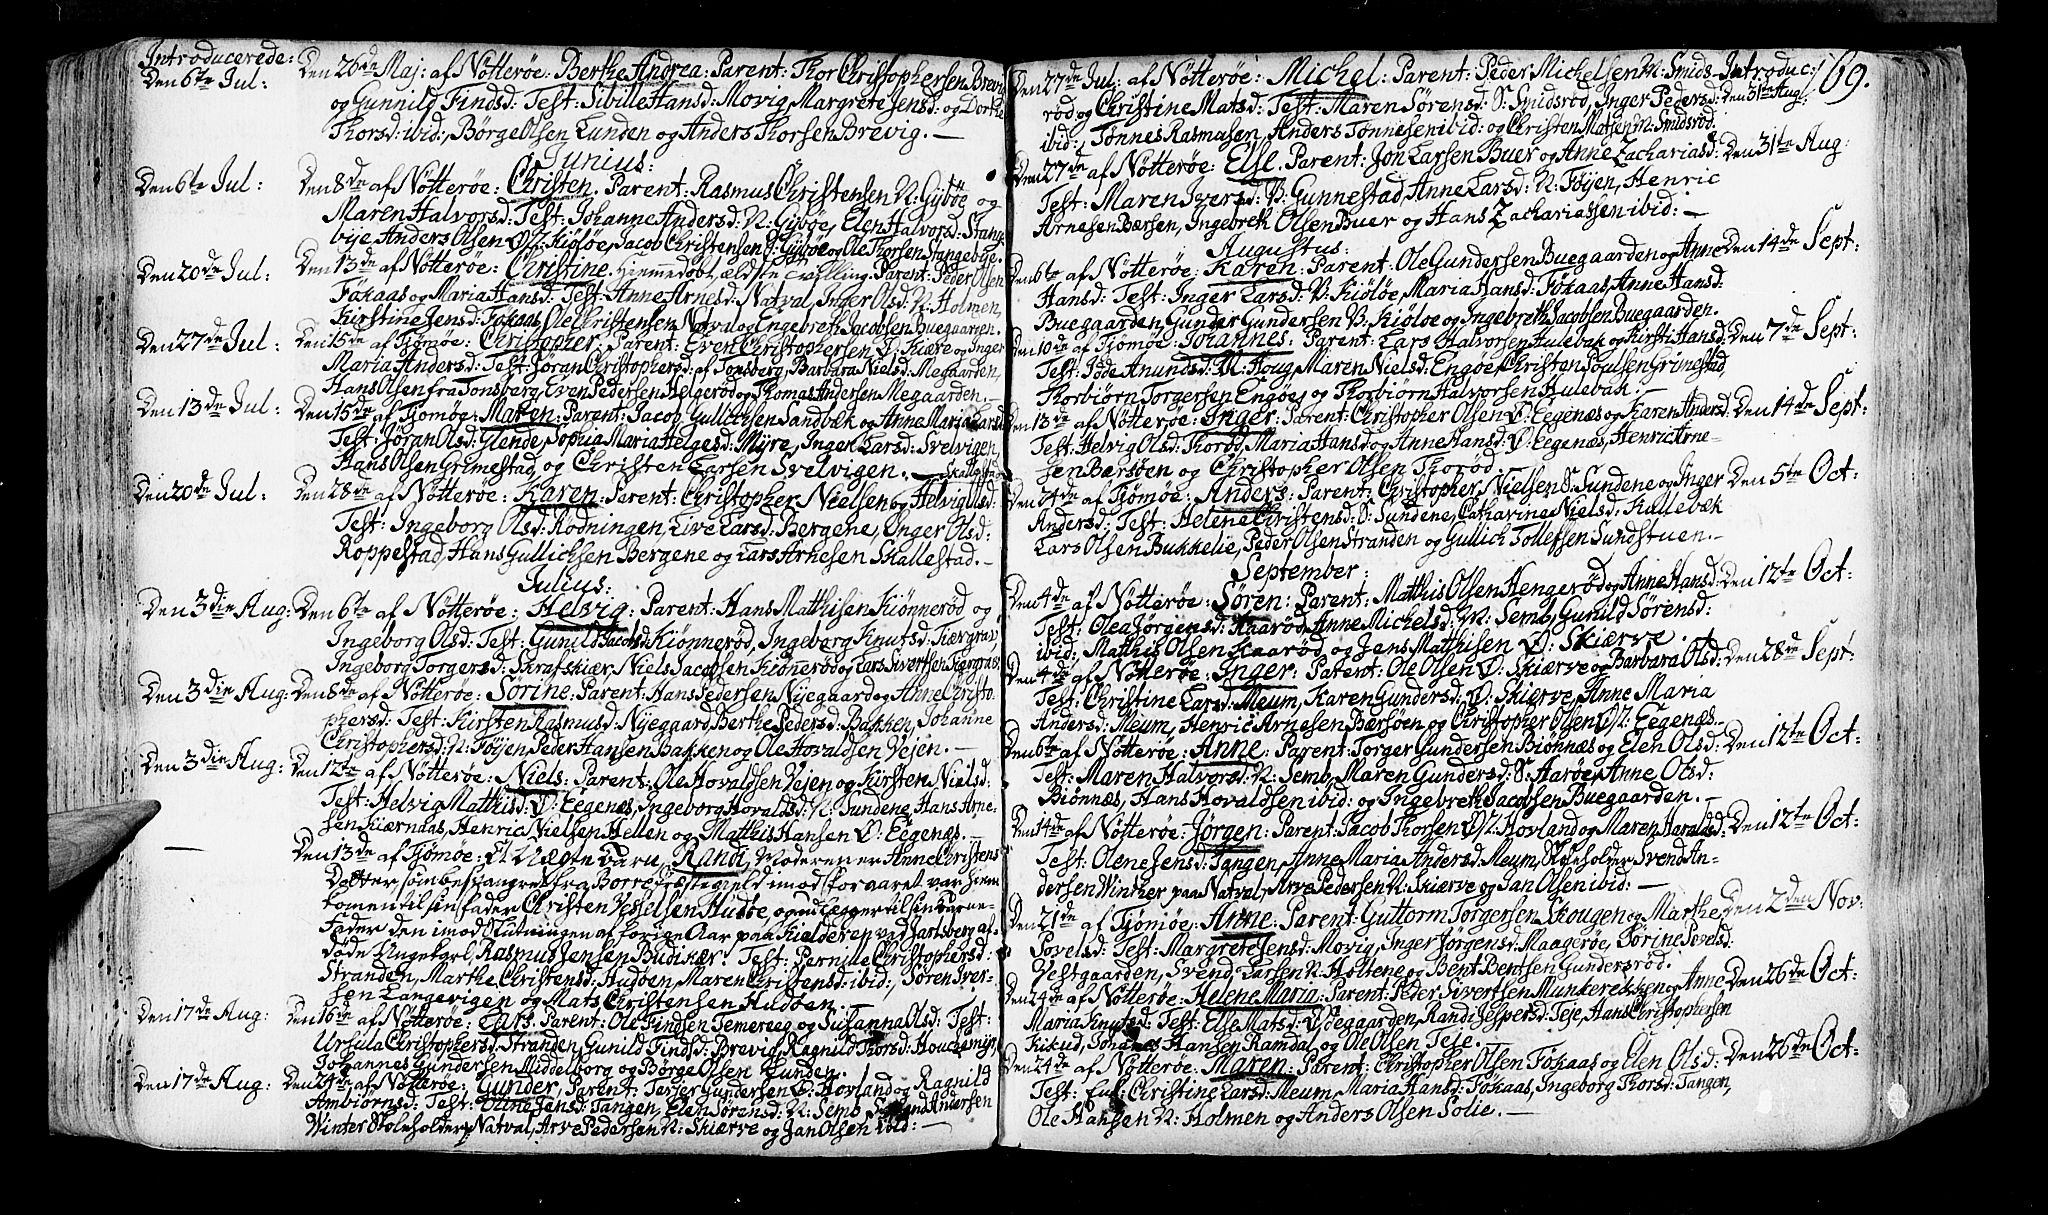 Introducerede:
Den 6te Jul: Den 26de Maj: af Nötterøe: Berthe Andrea: Parent: Thor Christophersen Brevig
og Gunnild Findsd: Test: Sibille Hansd: Movig, Margrete Jensd: og Dorthe
Thorsd: ibid:, Börge Olsen Lunden og Anders Thorsen Brevig. —
Junius:
Den 6te Jul: Den 8de af Nötterøe: Christen. Parent: Rasmus Christensen N: Gipöe og
Maren Halvorsd: Test: Johanne Andersd: N: Gipöe, Elen Halvorsd: Stange
bije, Anders Olsen Ø: Kiölöe, Jacob Christensen Gipöe og Ole Thorsen Stangebije.
Den 20de Jul: Den 13de af Nötterøe: Christine. Hiemmedöbt, ældste Tvilling. Parent: Peder Olsen
Fökaas og Maria Hansd: Test: Anne Arnesd: Natval, Inger Olsd: N: Holmen,
Kirstine Jensd: Fökaas, Ole Christensen Natval og Engebreth Jacobsen Buegaarden.
Den 27de Jul: Den 15de af Tjömöe: Christopher, Parent: Even Christophersen Ø: Kiære og Inger
Maria Andersd: Test: Jöran Christophersd: af Tonsberg, Barbara Nielsd: Megaarden,
Hans Olsen fra Tonsberg, Even Pedersen Helgerød og Thomas Andersen Megaarden. —
Den 13de Jul: Den 15de af Tjömöe: Maren: Parent: Jacob Gullichsen Sandbæk og Anne Maria Larsd:
Test: Jöran Olsd: Glende, Sophia Maria Helgesd: Myre, Inger Larsd: Svelvigen,
Hans Olsen Grimestad og Christen Larsen Svelvigen. —
Skallestad
Den 20de Jul: Den 28de af Nötterøe: Karen: Parent: Christopher Nielsen og Helvig Olsd:
Test: Ingeborg Olsd: Rodningen, Live Larsd: Bergene, Inger Olsd:
Roppestad, Hans Gullichsen Bergene og Lars Arnesen Skallestad. —
Julius:
Den 3die Aug: Den 6te af Nötterøe: Helvig: Parent: Hans Matthisen Kiönneröd og
Ingeborg Olsd: Test: Gunild Jacobsd: Kiönneröd, Ingeborg Knutsd: Tiærgrav,
Ingeborg Torgersd: Skrafskiær, Niels Jacobsen Kiöneröd og Lars Sivertsen Tiærgrav.
Den 3die Aug: Den 8de af Nötterøe: Sörine: Parent: Hans Pedersen Nijegaard og Anne Christo-
phersd: Test: Kirsten Rasmusd: Nijegaard, Berthe Pedersd: Bakken, Johanne
Christophersd: N: Föijen, Peder Hansen Bakken og Ole Hovaldsen Vejen. —
Den 3die Aug: Den 12te af Nötterøe: Niels: Parent: Ole Hovaldsen Vejen og Kirsten Nielsd:
Test: Helvig Matthisd: Ø: Eegenæs, Ingeborg Hovaldsd: N: Sundene, Hans Arne-
sen Kiærnaas, Henric Nielsen Hellen og Matthis Hansen Ø: Eegenæs. —
— Den 13de af Tjömöe: Et Uægte Barn, Randi, Moderen er Anne Christens
Datter, som besvangret fra Borre Præstegield imod Foraaret var hiem
kommen til sin Fader Christen Vesselsen Hudöe, og udlægger til sin Barne-
Fader den imod Slutningen af forige Aar paa Kielderen ved Jarlsberg af-
döde Ungekarl, Rasmus Jensen Budikær. Test: Pernille Christophersd:
Stranden, Marthe Christensd: Hudöen, Maren Christensd: ibid:, Sören Iver-
sen Langevigen og Mats Christensen Hudöen. —
Den 17de Aug: Den 16de af Nötterøe: Lars. Parent: Ole Findsen Temereeg og Susanna Olsd: Test:
Ursula Christophersd: Stranden, Gunild Findsd: Brevig, Ragnild Thorsd: Houchemijr,
Johannes Gundersen Middelborg og Börge Olsen Lunden.
Den 17de Aug: Den 24de af Nötterøe: Gunder, Parent: Terjer Gundersen Ø: Hovland og Ragnild
Ambiörnsd: Test: Oline Jensd: Tangen, Elen Söransd: N: Semb, Svend Andersen
Winter Stoleholder p: Natval, Arve Pedersen N: Skiærve og Jan Olsen ibid: —
169.
Den 27de Jul: af Nötterøe: Michel: Parent: Peder Michelsen M: Smids- Introduc:
röd og Christine Matsd: Test: Maren Sörensd: S: Smidsröd, Inger Pedersd: Den 31te Aug:
ibid:, Tönnes Rasmusen, Anders Tönnesen ibid: og Christen Matsen M: Smidsröd.
Den 27de af Nötterøe: Else. Parent: Jon Larsen Buer og Anne Zachariasd: Den 31te Aug:
Test: Maren Iversd: V: Gunnestad, Anne Larsd: N: Föijen, Henric
Arnesen Bærsen, Ingebreth Olsen Buer og Hans Zachariassen ibid: —
Augustus:
Den 6te af Nötterøe: Karen: Parent: Ole Gundersen Buegaarden og Anne Den 14de Sept:
Hansd: Test: Inger Larsd: V: Kiölöe, Maria Hansd: Fökaas, Anne Hansd:
Buegaarden, Gunder Gundersen V: Kiölöe og Ingebreth Jacobsen Buegaarden.
Den 10de af Tjömöe: Johannes: Parent: Lars Halvorsen Hulebak og Kirsti Hansd: Den 7de Sept:
Test: Jöde Anundsd: M: Houg, Maren Nielsd: Engöe, Christen Poulsen Grimestad,
Thorbiörn Torgersen Engöe, og Thorbiörn Halvorsen Hulebak. —
Den 13de af Nötterøe: Inger: Parent: Christopher Olsen Ø: Eegenæs og Karen Andersd: Den 14de Sept:
Test: Helvig Olsd: Thoröd, Maria Hansd: og Anne Hansd: Ø: Eegenæs, Henric Arne-
sen Bærsöen og Christopher Olsen Thoröd.
Den 24de af Tjömöe: Anders: Parent: Christopher Nielsen S: Sundene og Inger Den 5te Oct:
Andersd: Test: Helene Christensd: S: Sundene, Catharina Nielsd: Kallebæk
Lars Olsen Bukkelie, Peder Olsen Stranden og Gullich Tollefsen Sundstuen. —
September:
Den 4de af Nötterøe: Sören: Parent: Matthis Olsen Hengeröd og Anne Hansd: Den 12te Oct:
Test: Olea Jörgensd: Haaröd, Anne Michelsd: M: Semb, Gunild Sörensd:
ibid: Matthis Olsen Haaröd og Jens Matthisen Ø: Skiærve. —
Den 4de af Nötterøe: Inger: Parent: Ole Olsen Ø: Skiærve og Barbara Olsd: Den 28de Sept:
Test: Christine Larsd: Meum, Karen Gundersd: Ø: Skiærve, Anne Maria
Andersd: Meum, Henric Arnesen Bærsöen og Christopher Olsen Ø: Eegenæs.
Den 6te af Nötterøe: Anne: Parent: Torger Gundersen Biönnæs og Elen Olsd: Den 12te Oct:
Test: Maren Halvorsd: N: Semb, Maren Gundersd: S: Aaröe, Anne Olsd:
Biönnæs, Hans Hovaldsen ibid: og Ingebreth Jacobsen Buegaarden. —
Den 14de af Nötterøe: Jörgen: Parent: Jacob Thorsen Ø: Hovland og Maren Haraldsd: Den 12te Oct:
Test: Olene Jensd: Tangen, Anne Maria Andersd: Meum, Stoleholder Svend An-
dersen Winther paa Natval, Arve Pedersen N: Skiærve og Jan Olsen ibid: —
Den 21de af Tjömöe: Anne: Parent: Guttorm Torgersen Skougen og Marthe Den 2den Nov:
Povelsd: Test: Margrete Jensd: Movig, Inger Jörgensd: Maageröe, Sörine Povelsd:
Vestgaarden, Svend Larsen N: Holtene og Bent Bentsen Gundersröd.
Den 24de af Nötterøe: Helene Maria: Parent: Peder Sivertsen Munkerekken og Anne Den 26de Oct:
Maria Knutsd: Test: Else Matsd: Ødegaarden, Randi Jespersd: Teje, Hans Christophersen
Kikud, Johanes Hansen Ramdal og Ole Olsen Teje. —
Den 24de af Nötterøe: Maren: Parent: Christopher Olsen Fökaas og Elen Olsd: Den 26de Oct:
Test: Christine Larsd: Meum, Maria Hansd: Fökaas, Ingeborg Thorsd: Tangen,
Ole Hansen N: Holmen og Anders Olsen Solie. —